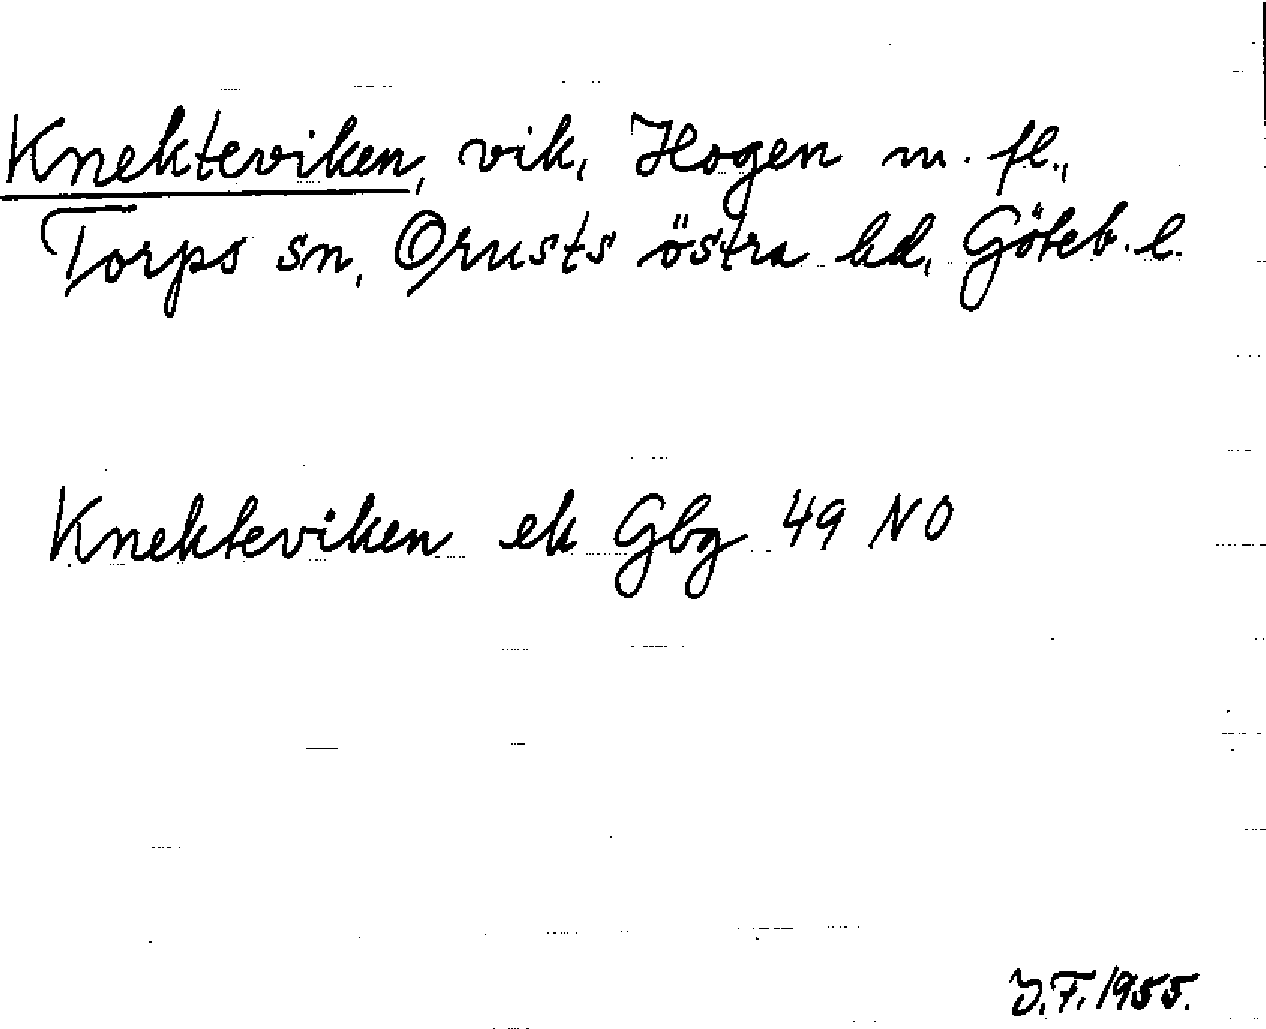 Knekteviken, vik, Hogen m. fl.,
Torps sn, Orusts östra hd, Göteb. l.
Knekteviken ek Gbg 49 NO
J.F. 1955.